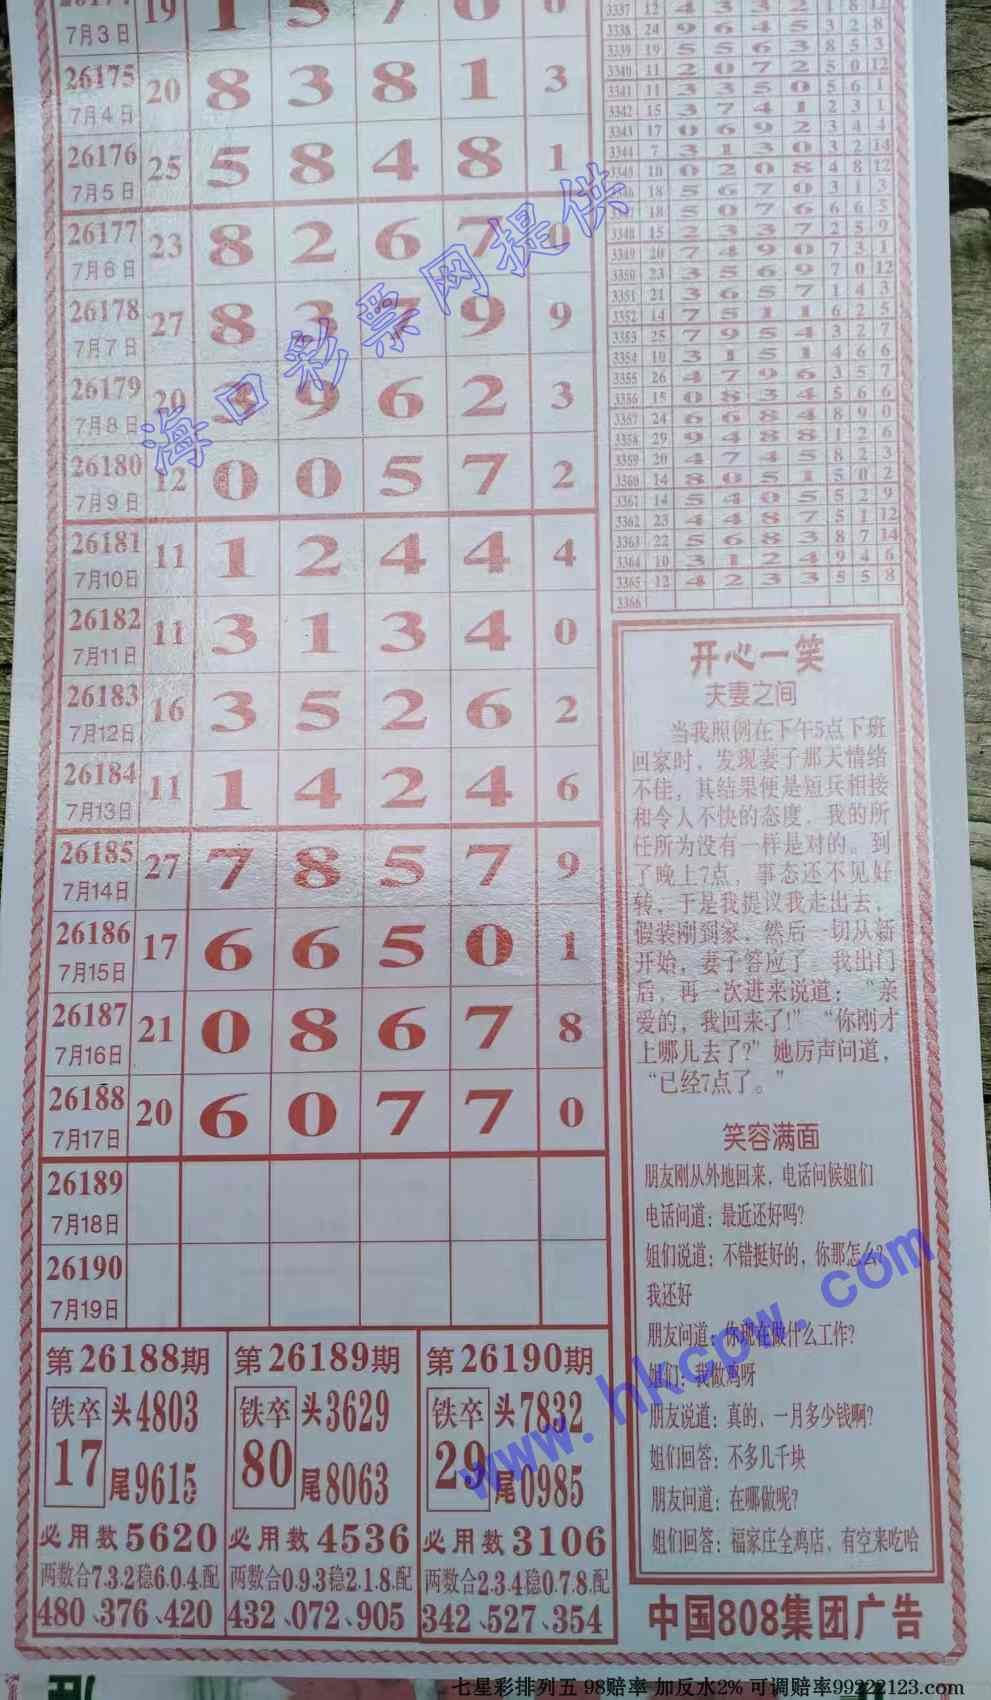 26174 19 1 5 7 6 0
7月3日
26175 20 8 3 8 1 3
7月4日
26176 25 5 8 4 8 1
7月5日
26177 23 8 2 6 7 0
7月6日
26178 27 8 3 7 9 9
7月7日
26179 20 3 9 6 2 3
7月8日
26180 12 0 0 5 7 2
7月9日
26181 11 1 2 4 4 4
7月10日
26182 11 3 1 3 4 0
7月11日
26183 16 3 5 2 6 2
7月12日
26184 11 1 4 2 4 6
7月13日
26185 27 7 8 5 7 9
7月14日
26186 17 6 6 5 0 1
7月15日
26187 21 0 8 6 7 8
7月16日
26188 20 6 0 7 7 0
7月17日
26189
7月18日
26190
7月19日
第26188期
铁卒 17
头4803
尾9615
必用数5620
两数合7.3.2稳6.0.4.配
480、376、420
第26189期
铁卒 80
头3629
尾8063
必用数4536
两数合0.9.3稳2.1.8.配
432、072、905
第26190期
铁卒 29
头7832
尾0985
必用数3106
两数合2.3.4稳0.7.8.配
342、527、354
3337 12 4 3 3 2 1 8 12
3338 24 9 6 4 5 3 2 8
3339 19 5 5 6 3 8 5 3
3340 11 2 0 7 2 5 0 12
3341 11 3 3 5 0 5 6 1
3342 15 3 7 4 1 2 3 1
3343 17 0 6 9 2 3 4 4
3344 7 3 1 3 0 3 2 14
3345 10 0 2 0 8 4 8 12
18 5 6 7 0 3 1 3
18 5 0 7 6 6 6 5
3348 15 2 3 3 7 2 5 9
3349 20 7 4 9 0 7 3 1
3350 23 3 5 6 9 7 0 12
3351 21 3 6 5 7 1 4 1
3352 14 7 5 1 1 6 2 5
3353 25 7 9 5 4 3 2 7
3354 10 3 1 5 1 4 6 6
3355 26 4 7 9 6 3 5 7
3356 15 0 8 3 4 5 6 6
3357 24 6 6 8 4 8 9 0
3358 29 9 4 8 8 1 2 6
3359 20 4 7 4 5 8 2 3
3360 14 8 0 5 1 5 0 2
3361 14 5 4 0 5 5 2 9
3362 23 4 4 8 7 5 1 12
3363 22 5 6 8 3 8 7 14
3364 10 3 1 2 4 9 4 6
3365 12 4 2 3 3 5 5 8
3366
开心一笑
夫妻之间
当我照例在下午5点下班
回家时，发现妻子那天情绪
不佳，其结果便是短兵相接
和令人不快的态度，我的所
任所为没有一样是对的。到
了晚上7点，事态还不见好
转，于是我提议我走出去，
假装刚到家，然后一切从新
开始，妻子答应了。我出门
后，再一次进来说道：“亲
爱的，我回来了!”“你刚才
上哪儿去了?”她厉声问道，
“已经7点了。”
笑容满面
朋友刚从外地回来，电话问候姐们
电话问道：最近还好吗?
姐们说道：不错挺好的，你那怎么?
我还好
朋友问道：你现在做什么工作?
姐们：我做鸡呀
朋友说道：真的，一月多少钱啊?
姐们回答：不多几千块
朋友问道：在哪做呢?
姐们回答：福家庄全鸡店，有空来吃哈
中国808集团广告
海口彩票网提供
www.hkcpw.com
七星彩排列五 98赔率 加反水2% 可调赔率99222123.com